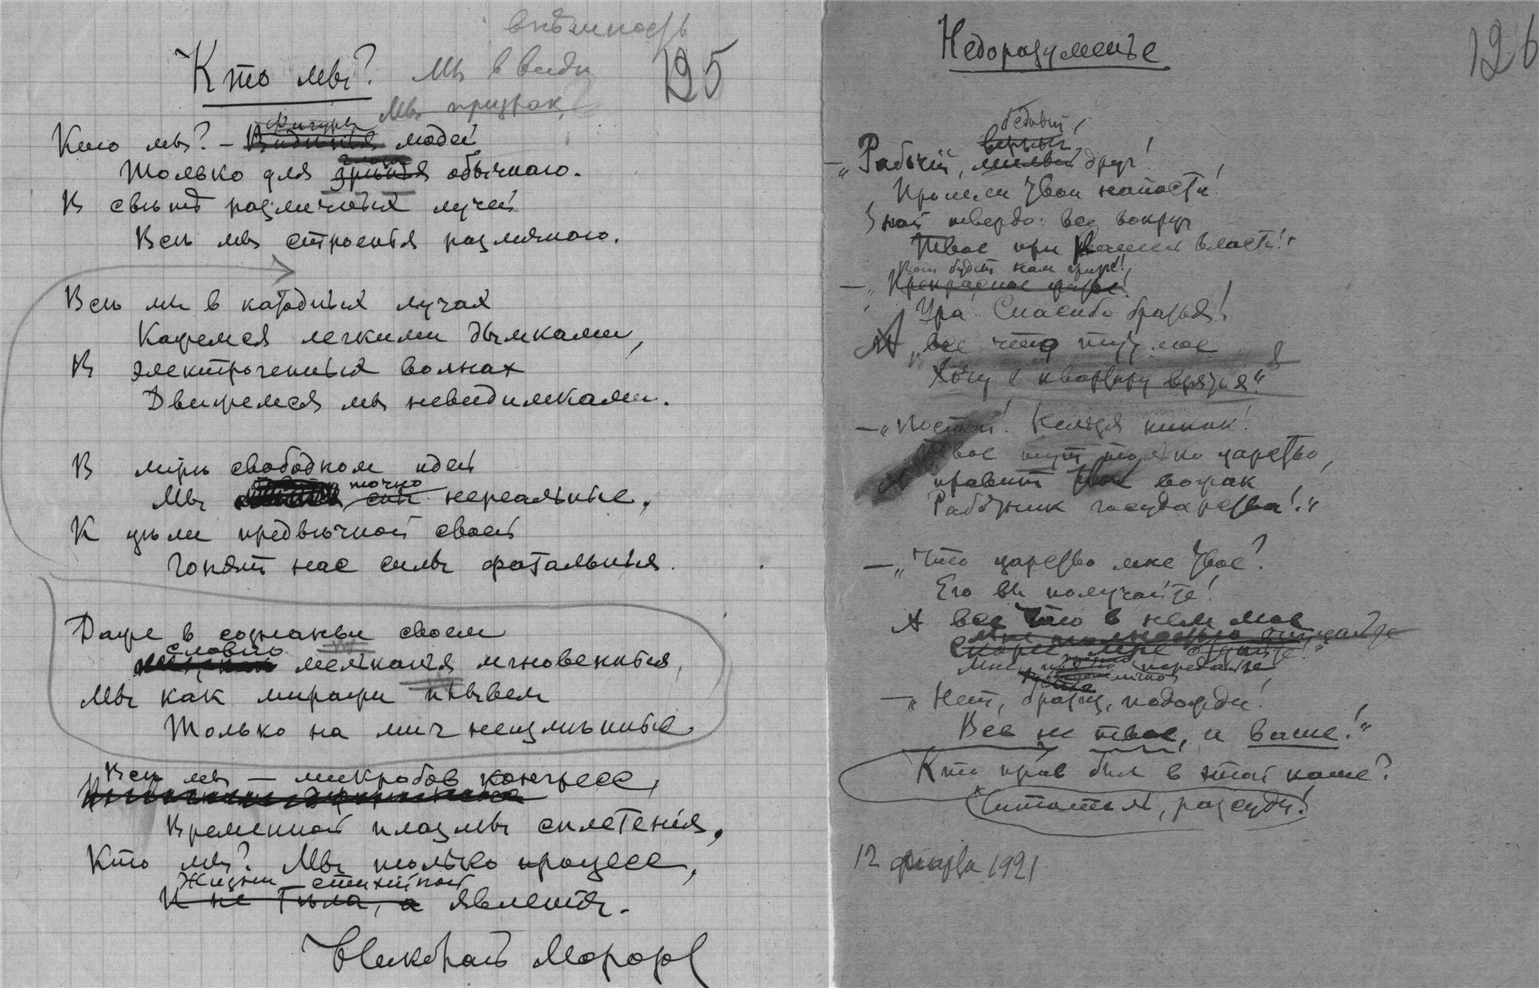 Кто мы?
Мы в виде
Мы призрак
125
Кто мы? – Виденья людей
фигуры
Только для зрѣнія обычнаго.
В свѣтѣ различных лучей
Всѣ мы строенья различнаго.
Всѣ мы в катодных лучах
Кажемся легкими дымками,
В электрогенных волнах
Движемся мы невидимками.
В мірѣ свободном идей
точно
Мы сны нереальные,
К цѣли предвѣчной своей
Гонят нас силы фатальныя.
Даже в сознаньи своем
словно
мельканія мгновенныя,
Мы как миражи плывем
Только на миг неизмѣнные
Всѣ мы – микробов конгресс,
Временной плазмы сплетенія,
Кто мы? Мы только процесс,
Жизни стихійной
И не тѣла, а явленія.
Николай Морозов
Недоразуменье
126
бедный,
"Рабочій, милый друг!
Прошли твои напасти!
Знай твердо: все вокруг
Твое при нашей власти!"
Вот будет нам
– "Прекрасное
Ура! Спасибо братья!
И все что тут мое
Хочу в квартиру взять я"
– "Постой! Нельзя никак!
Твое тут только царство,
А правит твой вожак
Работник государства!"
– "Что царство мне твое?
Его вы получайте!
А все что в нем мое
Мне полностью отдайте
Скорей мне отдайте!"
Мне передайте
– "Нет, братец, подожди!
Все не твое, и ваше!"
Кто прав был в этой каше?
Читатель, разсуди!
12 января 1921